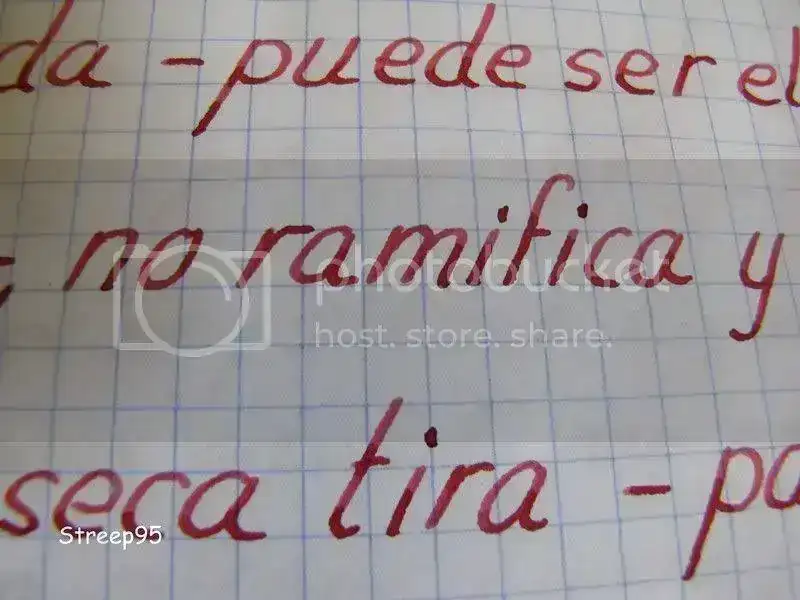 da - puede ser el
no ramifica y
photobucket
host. store. share.
seca tira - pa
Streep95